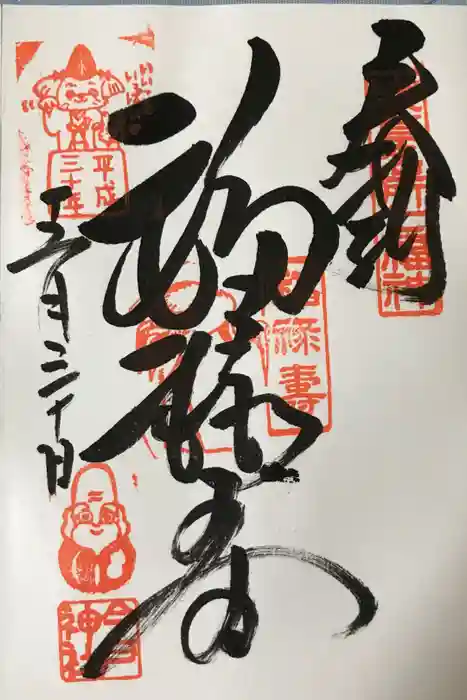 奉拝
福禄寿
福禄寿
平成
三十年
三月三十日
今戸
神社